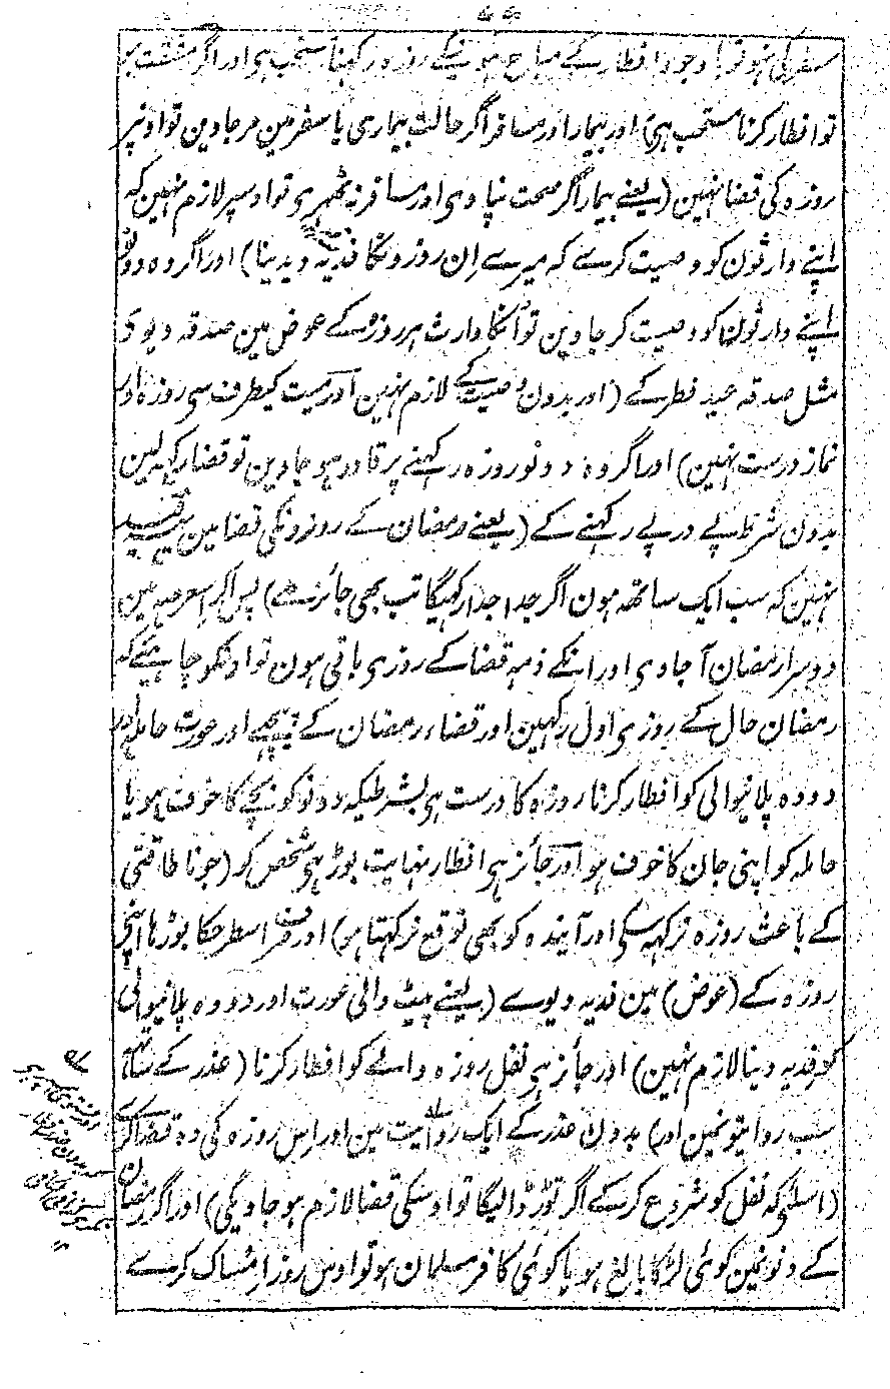 سفر کی نہو تو باوجود افطار کے مباح ہونیکے روزہ رکہنا مستحب ہی اور اگر مشقت ہو
تو افطار کرنا مستحب ہی) اور بیمار اور مسافر اگر حالت بیماری یا سفر مین مرجاوین تو اونپر
روزہ کی قضا نہین (یعنے بیمار اگر صحت نپاوی اور مسافر نہ ٹھہری تو اوسپر لازم نہین کہ
اپنے وارثون کو وصیت کرے کہ میرے اِن روزونکا فدیہ دیدینا) اور اگر وہ دونو
اپنے وارثونکو وصیت کر جاوین تو اُنکا وارث ہر روزہ کے عوض مین صدقہ دیوی
مثل صدقہ عید فطر کے (اور بدون وصیت کے لازم نہین اور میت کیطرف سی روزہ اور
نماز درست نہین) اور اگر وہ دونو روزہ رکہنے پر قادر ہو جاوین تو قضا رکہہ لین
بدون شرط پے در پے رکہنے کے (یعنے رمضان کے روزونکی قضا مین یہ قید
نہین کہ سب ایک ساتھہ ہون اگر جدا جدا رکہیگا تب بھی جائز ہے) پس اگر اِس عرصہ مین
دوسرا رمضان آجاوی اور انکے ذمہ قضا کے روزی باقی ہون تو اونکو چاہئیے کہ
رمضان حال کے روزی اول رکہین اور قضاء رمضان کے پیچھے اور عورت حاملہ اور
دودہ پلانیوالی کو افطار کرنا روزہ کا درست ہی بشرطیکہ دونو کو بچے کا خوف ہو یا
حاملہ کو اپنی جان کا خوف ہو اور جائز ہی افطار نہایت بوڑہی شخص کو (جو نا طاقتی
کے باعث روزہ نرکہہ سکی اور آیندہ کو بھی توقع نرکہتا ہو) اور فقط اسطرحکا بوڑہا اپنی
روزہ کے (عوض) مین فدیہ دیوے (یعنے پیٹ والی عورت اور دودہ پلانیوالی
کو فدیہ دینا لازم نہین) اور جائز ہی نفل روزہ والے کو افطار کرنا (عذر کے ساتھہ
سب روایتونمین اور) بدون عذر کے ایک روایت مین اور اِس روزہ کی وہ قضا کرے
(اسلئی کہ نفل کو شروع کر کے اگر توڑ ڈالیگا تو اوسکی قضا لازم ہو جاویگی) اور اگر رمضان
کے دنونمین کوئی لڑکا بالغ ہو یا کوئی کافر مسلمان ہو تو اوس روز امساک کرے